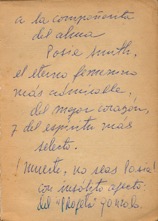 a la compañerita
del alma
Posia Smith,
el eterno femenino
más admirable,
del mejor corazón,
y del espíritu más
selecto.
¡Muerte, no seas Posia!
con insólito afecto
del "Profeta"